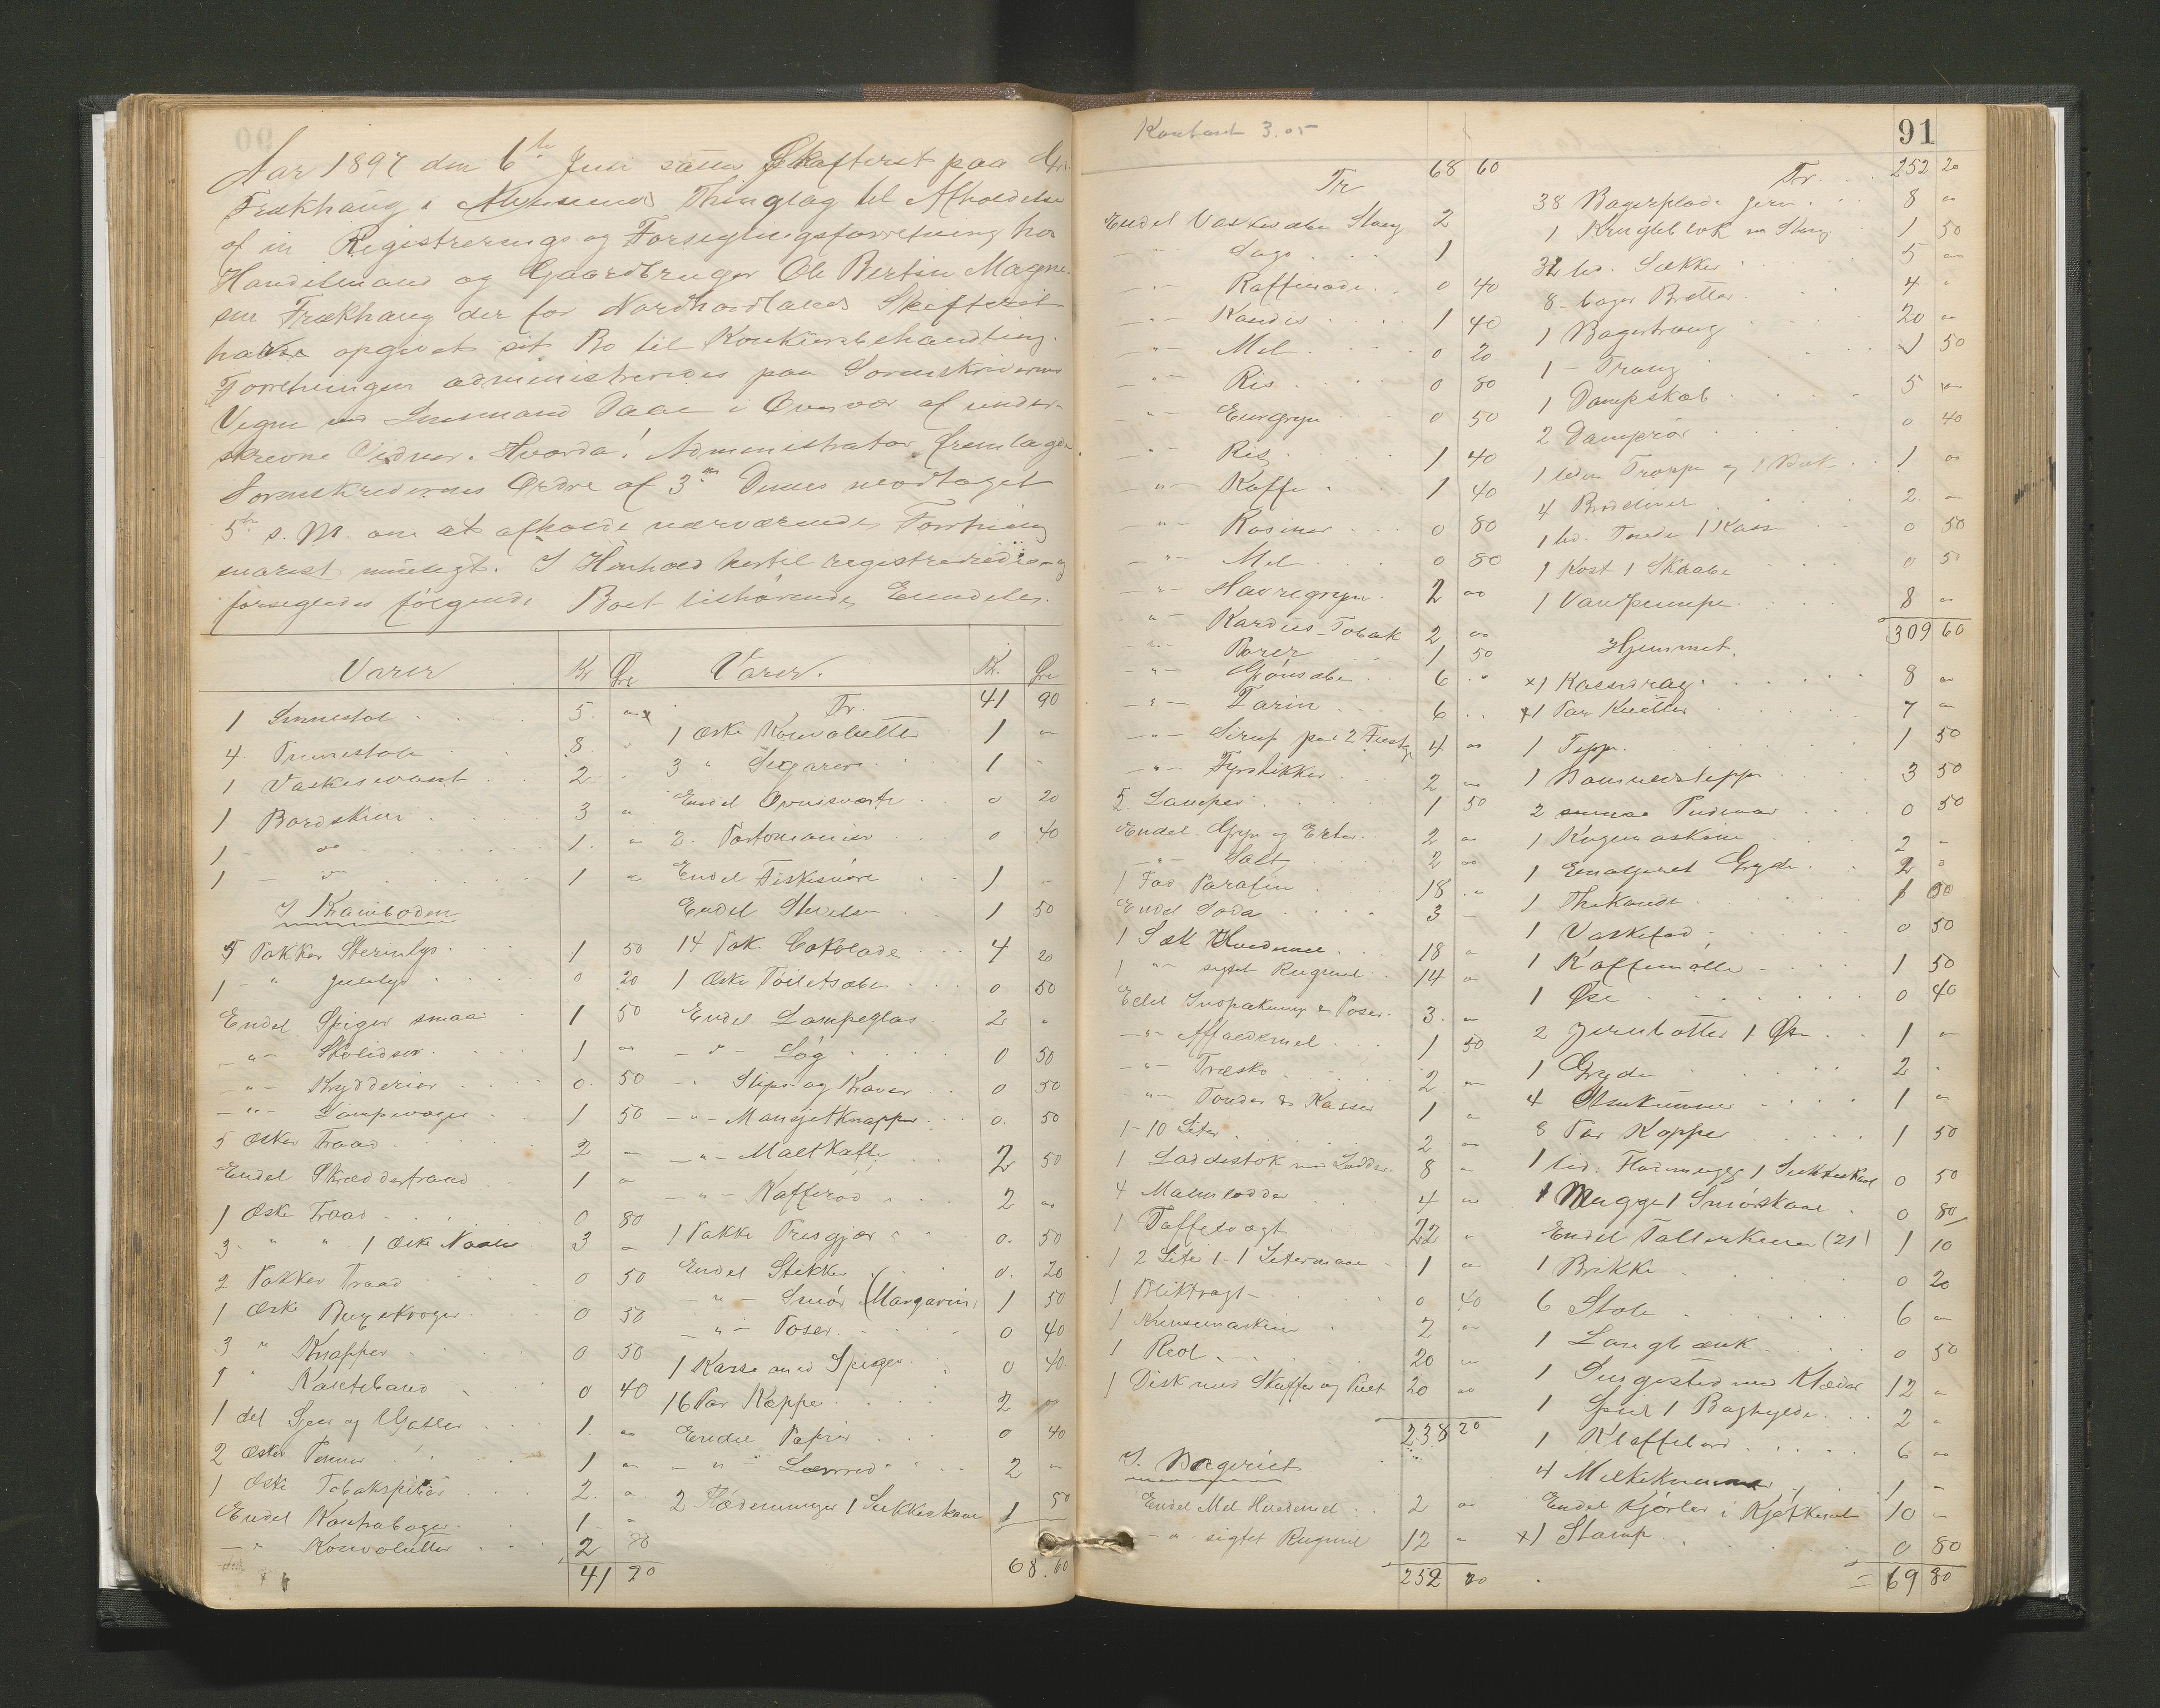 Aar 1897 den 6te Juni sattes Skifteret paa Gr.
Frækhaug i Alversunds Thinglag til Afholdelse
af en Registrerings og Forseglingsforretning hos
Handelsmand og Gaardbruger Ole Bertin Magne-
sen Frækhaug der for Nordhordlands Skifteret
havde opgivet sit Bo til Konkursbehandling.
Forretningen administreredes paa Sorenskriverens
Vegne ved Lensmand Daae i Overvær af under-
skrevne Vidner. Hvorda! Administrator fremlagde
Sorenskriverens Ordre af 3die Dennes modtaget
5te s. M. om at afholde nærværende Forretning
snarest muligt. I Henhold hertil registreredes og
forsegledes følgende Boet tilhørende Eiendele.
Varer Kr Øre
1 Sinnestol 5 "
4 Pinnestole 8 "
1 Vaskeservant 2 "
1 Bordskive 3 "
1 - do 1 "
1 - do 1 "
I Kramboden
5 Pakker Sterinlys 1 50
1 - " Julelys 0 20
Endel Spiger smaa 1 50
-"- Skolidser 1 "
-"- Krydderier 0 50
-"- Lampevæger 1 50
5 Æsker Traad 2 "
Endel Skræddertraad 1 "
1 Æske Traad 0 80
3 " " 1 Æske Naale 3 "
2 Pakker Traad 0 50
1 Æske 0 50
3 " Knapper 0 50
1 " Kantebaand 0 40
1 del og Gafler 1 "
2 Æsker Penner 1 "
1 Æske Tobakspiber 2 "
Endel Kontrabøger 1 "
-"- Konvolutter 2 80
41 90
Varer. Kr. Øre
Tr. 41 90
1 Æske Konvolutter 1 "
3 " Sigarer 1 -
Endel Ovnsværte 0 20
2 Portemonnier 0 40
Endel Fiskesnøre 1 -
Endel Stivelse 1 50
14 Pak. Cokolade 4 20
1 Æske Toiletsæbe 0 50
Endel Lampeglas 2 "
-"- Løg 0 50
-"- Slips og Kraver 0 50
-"- Mansjetknapper 0 50
-"- Maltkaffe 2 50
-"- Kafferød 2 "
1 Pakke Presgjær 0 50
Endel Stikker 0 20
-"- Smør (Margarin) 1 50
-"- Poser 0 40
1 Kasse med Spiger 0 40
16 Par Koppe 2 "
Endel Papir 0 40
-"- Lærred 2 "
2 Flødemugger 1 Sukkerskaal 1 50
68.60
Konboet 3.05
91
Tr 68 60
Endel Vaskesæbe Stang 2
-"- Sago 1
-"- Raffinade 0 40
-"- Kandis 1 40
-"- Mel 0 20
-"- Ris 0 80
-"- Gryn 0 50
-"- Ris 1 40
-"- Kaffe 1 40
-"- Rosiner 0 80
-"- Mel 0 80
-"- Havregryn 2 "
-"- Kardus-Tobak 2 "
-"- Borer 1 50
-"- Grønsæbe 6 "
-"- Farin 6 "
-"- Sirup paa 2 Fustage 4 "
-"- Fyrstikker 2 "
5 Lamper 1 50
Endel Gryn og Erter 2 "
-"- Salt 2 "
1 Fad Parafin 18 "
Endel Soda 3 -
1 Sæk Hvedemel 18 "
1 " sigtet Rugmel 14 "
Endel Indpakning & Poser 3 "
-"- Affaldsmel 1 50
-"- Træsko 2 "
-"- Tønder & Kasser 1 "
1-10 Liter 2 "
1 Loddestok med Lodder 8 "
4 Malmlodder 4 "
1 Taffelvægt 22 "
1 2 Liter 1-1 Litermaal 1 "
1 Bliktragt 0 40
1 Rensemaskin 2 "
1 Reol 20 "
1 Disk med Skuffer og Pult 20 "
238 20
I Bageriet
Endel Mel Hvedemel 2 "
-"- sigtet Rugmel 12 "
252 20
Tr. 252 20
38 Bagerplade jern 8 "
1 m Stang 1 50
32 hd. Sækker 5 "
8 bager Bretter 4 "
1 Bagertraug 20 "
1 - Traug 1 50
1 Dampskab 5 "
2 Damprør 0 40
1 liden Trappe og 1 1 "
4 2 -
1 hd. Tønde 1 Kasse 0 50
1 Kost 1 Skrabe 0 50
1 Vanpumpe 8 "
309 60
Hjemmet.
x1 Kassedrag 8 "
x1 Par 7 "
1 Teppe 1 50
1 3 50
2 0 50
1 2 -
1 Emaljeret Gryde 2 "
1 Thekande 1 50
1 Vaskefad 0 50
1 Kaffemølle 1 50
1 Øse 0 40
2 Jernbøtter 1 Øse 1 "
1 Gryde 2 "
4 1 "
8 Par Kopper 1 50
1 lid. Flødemugge 1 Sukkerskaal 0 50
1 Mugge 1 Smørskaal 0 80
Endel Tallerkener (21) 1 10
1 Brikke 0 20
6 Stole 6 "
1 Langbænk 0 50
1 Sengested med Klæder 12 "
1 Speil 1 Boghylde 2 "
1 Klaffebord 6 "
4 Melkekummer 1 -
Endel Kjørler i Kjøkkenet 10 "
x1 Stamp 0 80
= 69 80